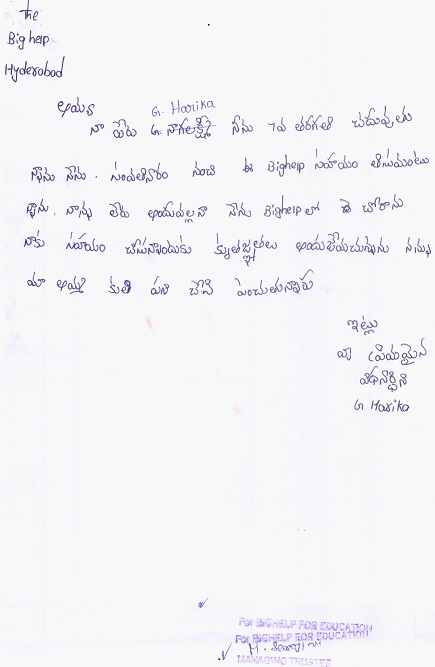 The
Bighelp
Hyderabad
అయ్య
G. Harika
నా పేరు G. నాగలక్ష్మి నేను 7వ తరగతి చదువుతు
న్నాను నేను. సంవత్సరం నుంచి ఈ Bighelp సహాయం తీసుకుంటు
న్నాను. నాన్న లేరు అందువల్ల నా నేను Bighelp లో ఈ చేరాను
నాకు సహాయం చేసినందుకు కృతజ్ఞతలు అందచేయుచున్నాను నన్ను
మా అమ్మ కులి పని చేసి పెంచుతున్నారు
ఇట్లు
మీ ప్రియమైన
విధ్యార్ధిని
G Harika
For BIGHELP FOR EDUCATION
For BIGHELP FOR EDUCATION
MANAGING TRUSTEE